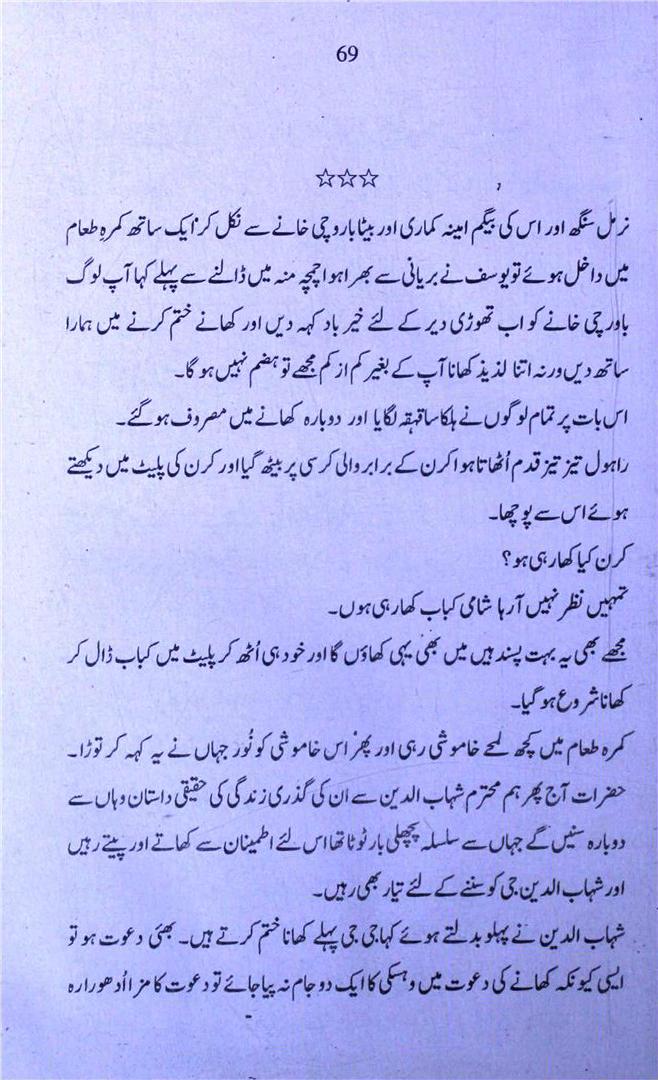 69
☆☆☆
نرمل سنگھ اور اس کی بیگم امینہ کماری اور بیٹا باروچی خانے سے نکل کر ایک ساتھ کمرہِ طعام
میں داخل ہوئے تو یوسف نے بریانی سے بھرا ہوا چمچہ منہ میں ڈالنے سے پہلے کہا آپ لوگ
باورچی خانے کو اب تھوڑی دیر کے لئے خیر باد کہہ دیں اور کھانے ختم کرنے میں ہمارا
ساتھ دیں ورنہ اتنا لذیذ کھانا آپ کے بغیر کم از کم مجھے تو ہضم نہیں ہو گا۔
اس بات پر تمام لوگوں نے ہلکا سا قہقہ لگایا اور دوبارہ کھانے میں مصروف ہو گئے۔
راہول تیز تیز قدم اُٹھاتا ہوا کرن کے برابر والی کرسی پر بیٹھ گیا اور کرن کی پلیٹ میں دیکھتے
ہوئے اس سے پوچھا۔
کرن کیا کھا رہی ہو؟
تمہیں نظر نہیں آرہا شامی کباب کھا رہی ہوں۔
مجھے بھی یہ بہت پسند ہیں میں بھی یہی کھاؤں گا اور خود ہی اُٹھ کر پلیٹ میں کباب ڈال کر
کھانا شروع ہو گیا۔
کمرہ طعام میں کچھ لمحے خاموشی رہی اور پھر اس خاموشی کو نُور جہاں نے یہ کہہ کر توڑا۔
حضرات آج پھر ہم محترم شہاب الدین سے ان کی گذری زندگی کی حقیقی داستان وہاں سے
دوبارہ سنیں گے جہاں سے سلسلہ پچھلی بار ٹوٹا تھا اس لئے اطمینان سے کھاتے اور پیتے رہیں
اور شہاب الدین جی کو سننے کے لئے تیار بھی رہیں۔
شہاب الدین نے پہلو بدلتے ہوئے کہا جی جی پہلے کھانا ختم کرتے ہیں۔ بھئی دعوت ہو تو
ایسی کیونکہ کھانے کی دعوت میں وہسکی کا ایک دو جام نہ پیا جائے تو دعوت کا مزا اُدھورا رہ